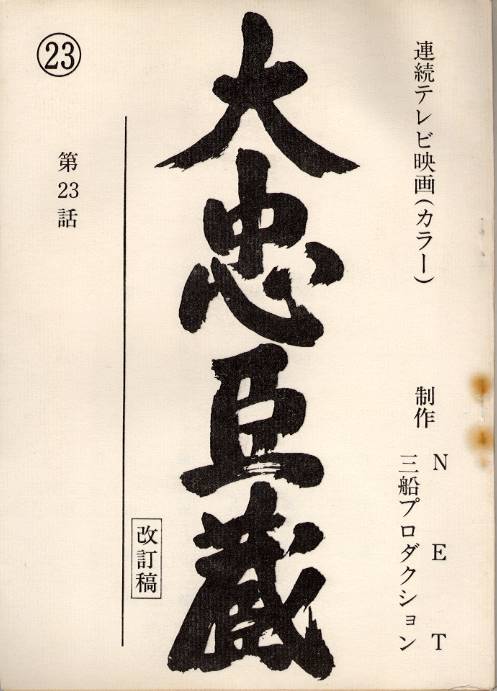 連続テレビ映画(カラー)
制作
NET
三船プロダクション
大忠臣蔵
改訂稿
第23話
㉓